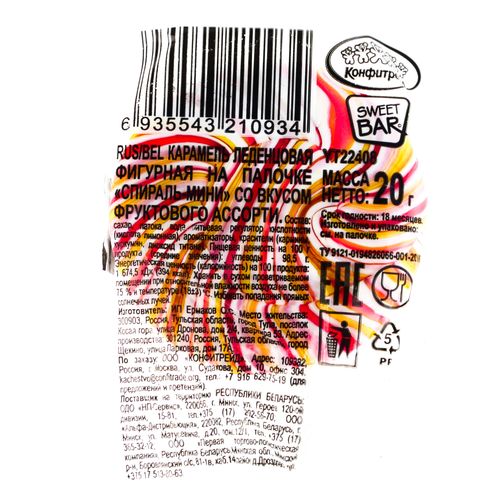 6 935543 210934
Конфитрейд
SWEET
BAR
RUS/BEL КАРАМЕЛЬ ЛЕДЕНЦОВАЯ
ФИГУРНАЯ НА ПАЛОЧКЕ
«СПИРАЛЬ МИНИ» СО ВКУСОМ
ФРУКТОВОГО АССОРТИ. Состав:
сахар, патока, вода питьевая, регулятор кислотности
(кислота лимонная), ароматизаторы, красители (кармин,
куркумин, диоксид титана). Пищевая ценность на 100 г
продукта (средние значения): углеводы 98,5 г.
Энергетическая ценность (калорийность) на 100 г продукта:
1 674,5 кДж (394 ккал). Хранить в сухом проветриваемом
помещении при относительной влажности воздуха не более
75 % и температуре (18±3) °С. Избегать попадания прямых
солнечных лучей.
Изготовитель: ИП Ермаков О.С. Место жительства:
300903, Россия, Тульская область, город Тула, посёлок
Косая гора, улица Дронова, дом 2/4, квартира 59. Адрес
производства: 301240, Россия, Тульская область, город
Щекино, улица Парковая, дом 17А.
По заказу ООО «КОНФИТРЕЙД». Адрес: 109382,
Россия, г. Москва, ул. Судакова, дом 10, офис 304.
kachestvo@confitrade.org, тел.: +7 916 629-75-19 (для
предложений и претензий).
Поставщик на территорию РЕСПУБЛИКИ БЕЛАРУСЬ:
ОДО «НП-Сервис», 220056, г. Минск, ул. Героев 120-ой
дивизии, 15-81, тел.+375 (17) 292-55-70, ООО
«Альфа-Дистрибьюция», 220028, Республика Беларусь, г.
Минск, ул. Матусевича, д.20, пом.12/1, тел. +375 (17)
365-32-12, ООО "Первая торгово-политическая
компания», Республика Беларусь, Минская обл., Минский
р-н, Боровлянский с/с, 81-1в, каб.14,
+375 17 513-20-63
YT22408
МАССА
НЕТТО: 20 г
Срок годности: 18 месяцев.
Изготовлено и упаковано:
см. на палочке.
ТУ 9121-0194826066-001-20
ЕАС
5
PF